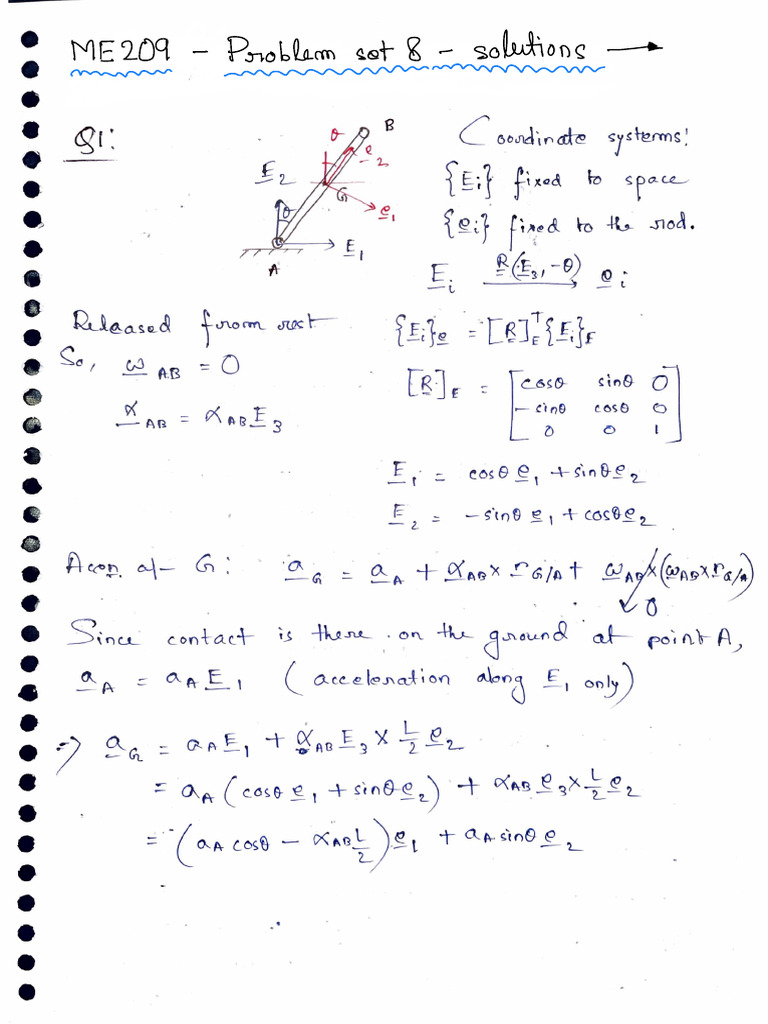 ME209 - Problem set 8 - solutions →
Q1:
θ
B
e2
E2
G
e1
θ
E1
A
Coordinate systems:
{Ei} fixed to space
{ei} fixed to the rod.
Ei R(E3, -θ) → ei
Released from rest
So, ωAB = 0
αAB = αAB E3
{Ei}e = [R]ᵀE {Ei}E
[R]E = [cosθ sinθ 0
-sinθ cosθ 0
0 0 1]
E1 = cosθ e1 + sinθ e2
E2 = -sinθ e1 + cosθ e2
Accn. of G: aG = aA + αAB × rG/A + ωAB × (ωAB × rG/A)
0
Since contact is there on the ground at point A,
aA = aA E1 (acceleration along E1 only)
⇒ aG = aA E1 + αAB E3 × L/2 e2
= aA (cosθ e1 + sinθ e2) + αAB e3 × L/2 e2
= (aA cosθ - αAB L/2) e1 + aA sinθ e2